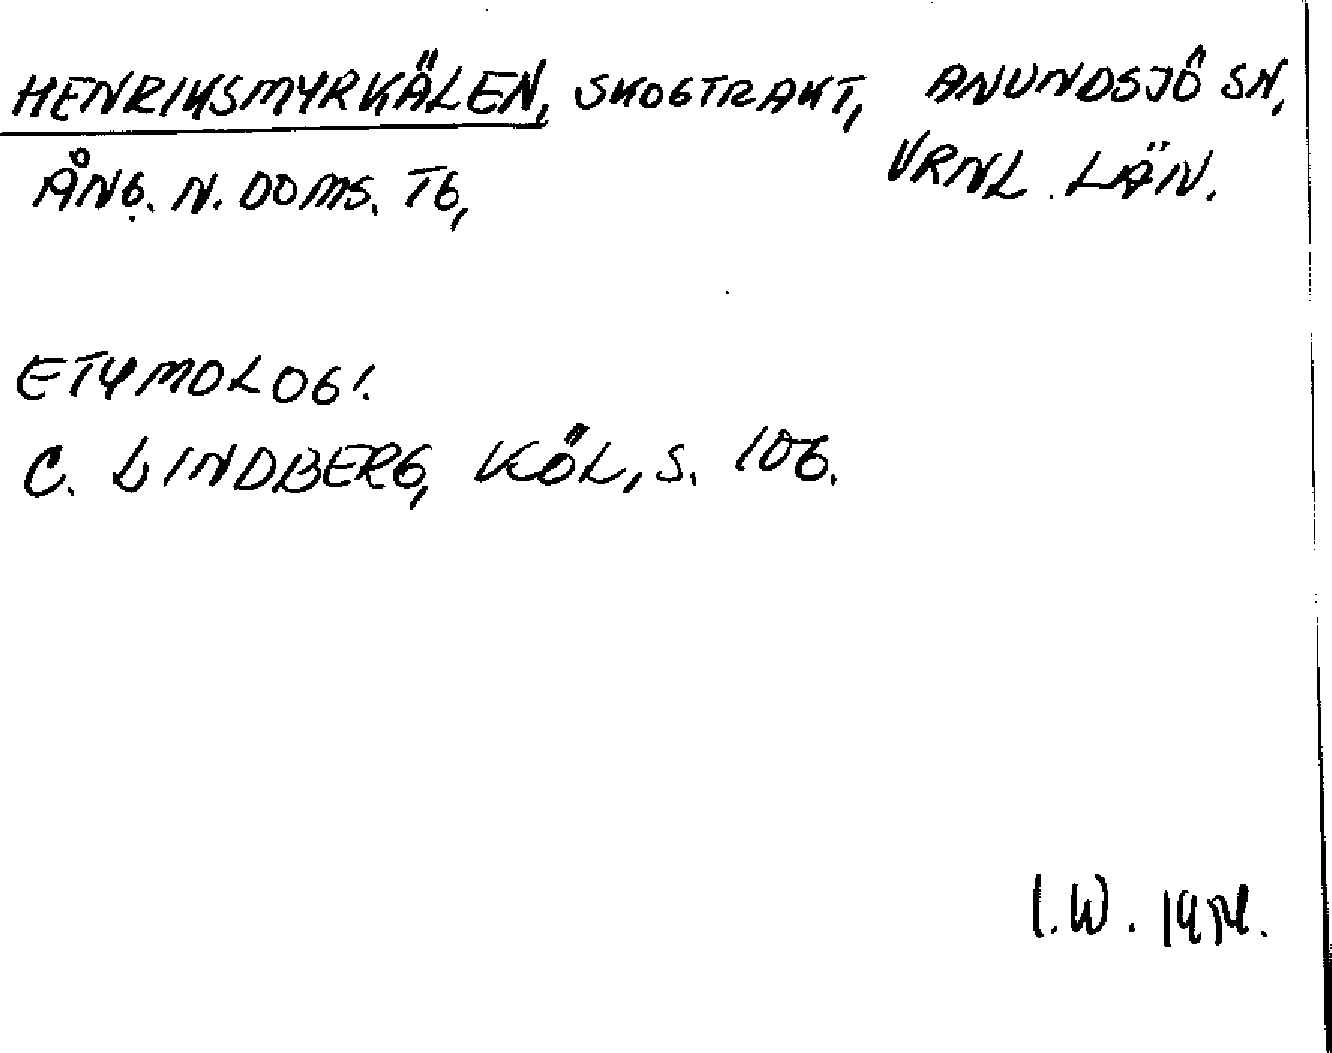 HENRIKSMYRKÄLEN, SKOGTRAKT, ANUNDSJÖ SN,
ÅNG. N. DOMS. TG, VRNL. LÄN.
ETYMOLOGI.
C. LINDBERG, KÖL, S. 106.
I.W. 1974.